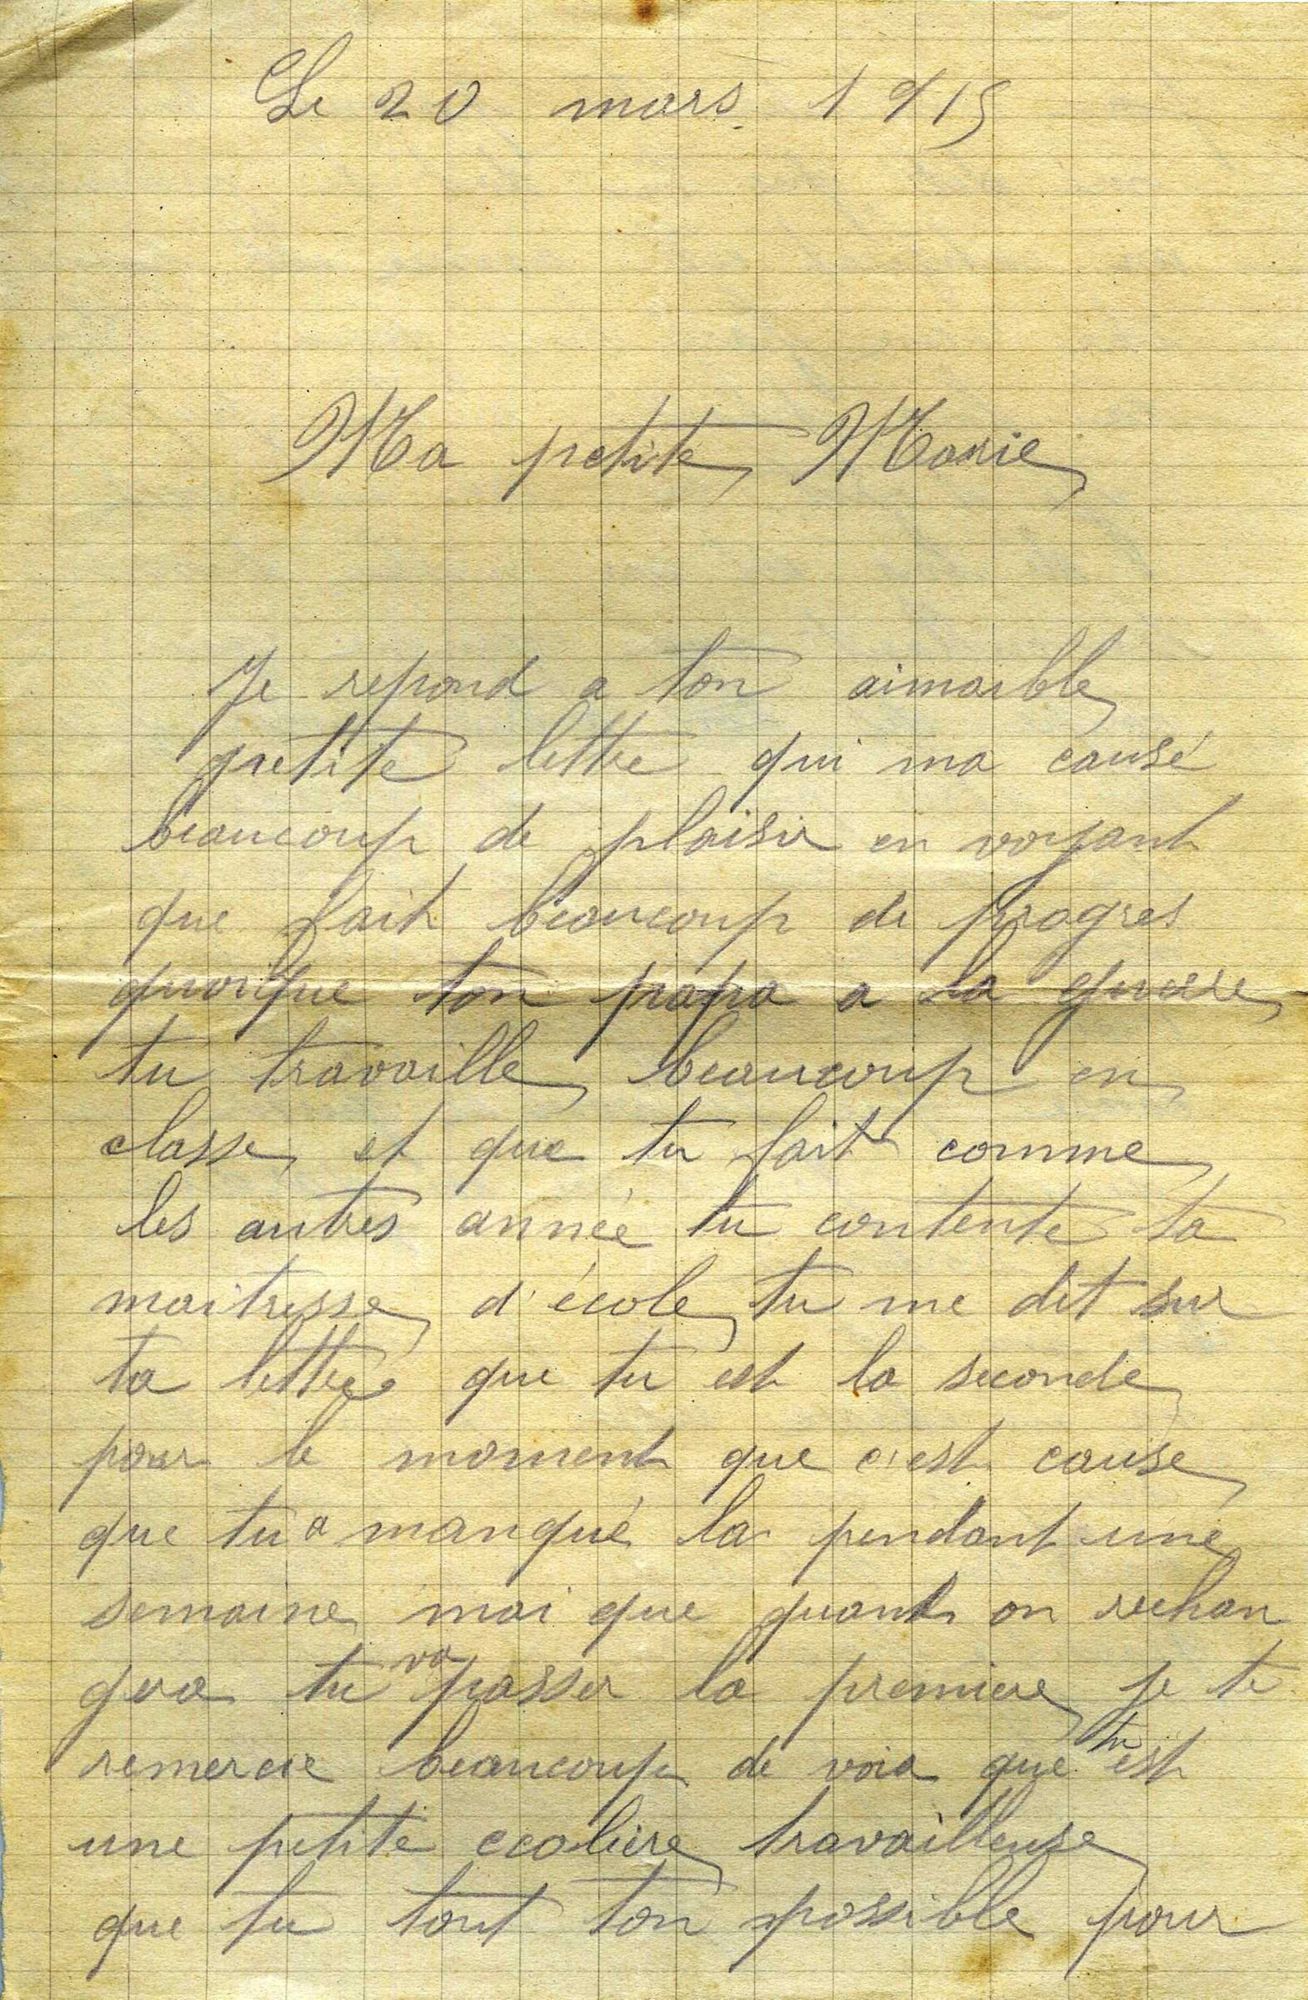 Le 20 mars 1915
Ma petite Marie
Je repond a ton aimaible
petite lettre qui ma causé
beaucoup de plaisir en voyant
que fait beaucoup de progres
quoique ton papa a la guerre
tu travaille beaucoup en
classe et que tu fait comme
les autres année tu contente ta
maitresse d'école tu me dit sur
ta lettre que tu est la seconde
pour le moment que c'est cause
que tu a manqué la pendant une
semaine mai que quant on rechan
gera tu va passer la premiere je te
remercie beaucoup de voir que tu est
une petite ecoliere travailleuse
que tu tout ton possible pour